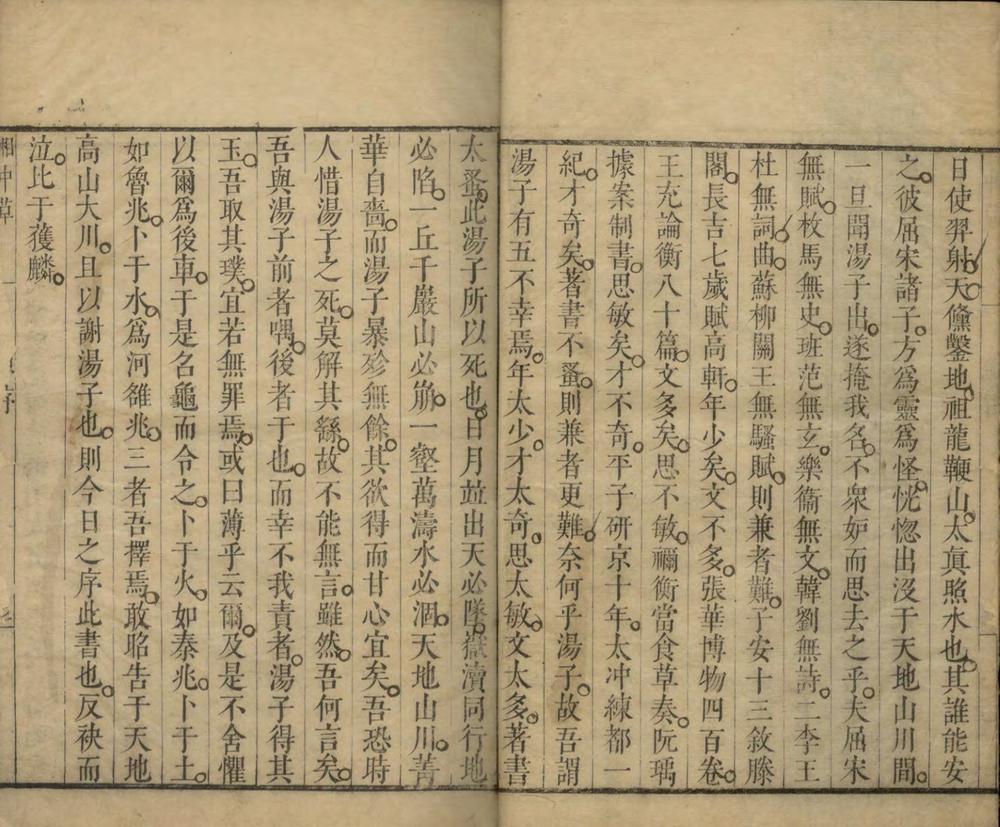 日使羿射天儵鑿地祖龍鞭山太眞照水也其誰能安
之彼屈宋諸子方爲靈爲怪恍惚出沒于天地山川間
一旦聞湯子出遂掩我名不衆妒而思去之乎夫屈宋
無賦枚馬無史班范無玄樂衞無文韓劉無詩二李王
杜無詞曲蘇柳關王無騷賦則兼者難子安十三敘滕
閣長吉七歲賦高軒年少矣文不多張華博物四百卷
王充論衡八十篇文多矣思不敏禰衡當食草奏阮瑀
據案制書思敏矣才不奇平子研京十年太冲練都一
紀才奇矣著書不蚤則兼者更難奈何乎湯子故吾謂
湯子有五不幸焉年太少才太奇思太敏文太多著書
太蚤此湯子所以死也日月並出天必墜嶽瀆同行地
必陷一丘千巖山必崩一壑萬濤水必涸天地山川菁
華自嗇而湯子暴殄無餘其欲得而甘心宜矣吾恐時
人惜湯子之死莫解其繇故不能無言雖然吾何言矣
吾與湯子前者喁後者于也而幸不我責者湯子得其
玉吾取其璞宜若無罪焉或曰薄乎云爾及是不舍懼
以爾爲後車于是名龜而令之卜于火如秦兆卜于土
如魯兆卜于水爲河雒兆三者吾擇焉敢昭告于天地
高山大川且以謝湯子也則今日之序此書也反袂而
泣比于獲麟